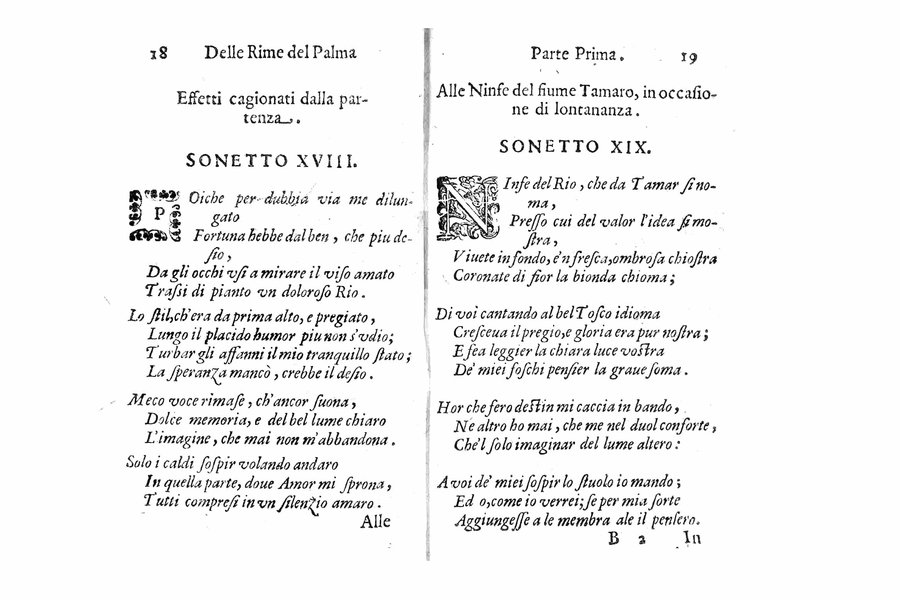 18 Delle Rime del Palma
Effetti cagionati dalla par-
tenza.
SONETTO XVIII.
POiche per dubbia via me dilun-
gato
Fortuna hebbe dal ben, che piu de-
ſio,
Da gli occhi vſi a mirare il viſo amato
Traſsi di pianto vn doloroſo Rio.
Lo ſtil, ch'era da prima alto, e pregiato,
Lungo il placido humor piu non s'vdio;
Turbar gli affanni il mio tranquillo ſtato;
La ſperanza mancò, crebbe il deſio.
Meco voce rimaſe, ch'ancor ſuona,
Dolce memoria, e del bel lume chiaro
L'imagine, che mai non m'abbandona.
Solo i caldi ſoſpir volando andaro
In quella parte, doue Amor mi ſprona,
Tutti compreſi in vn ſilenzio amaro.
Alle
Parte Prima. 19
Alle Ninfe del fiume Tamaro, in occaſio-
ne di lontananza.
SONETTO XIX.
NInfe del Rio, che da Tamar ſi no-
ma,
Preſſo cui del valor l'idea ſi mo-
ſtra,
Viuete in fondo, e'n freſca, ombroſa chioſtra
Coronate di fior la bionda chioma;
Di voi cantando al bel Toſco idioma
Creſceua il pregio, e gloria era pur noſtra;
E fea leggier la chiara luce voſtra
De' miei foſchi penſier la graue ſoma.
Hor che fero deſtin mi caccia in bando,
Ne altro ho mai, che me nel duol conforte,
Che'l ſolo imaginar del lume altero:
A voi de' miei ſoſpir lo ſtuolo io mando;
Ed o, come io verrei; ſe per mia ſorte
Aggiungeſſe a le membra ale il penſero.
B 2 In